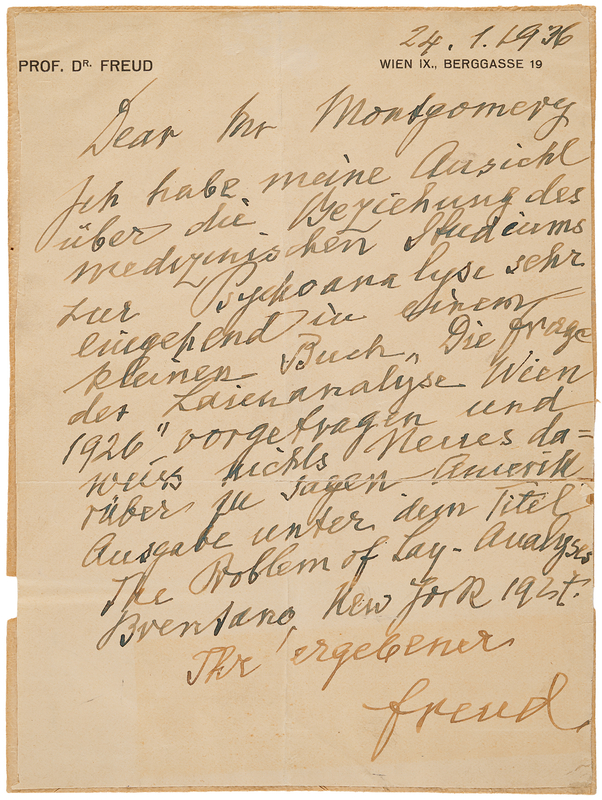 24.1.1936
PROF. DR. FREUD WIEN IX., BERGGASSE 19
Dear Mr Montgomery
Ich habe meine Ansicht
über die Beziehung des
medizinischen Studiums
zur Psychoanalyse sehr
eingehend in einem
kleinen Buch „Die Frage
der Laienanalyse Wien
1926" vorgetragen und
weiss nichts Neues da=
rüber zu sagen Amerik
Ausgabe unter dem Titel
The Problem of Lay-Analyses
Brentano, New York 1927.
Ihr ergebener
Freud